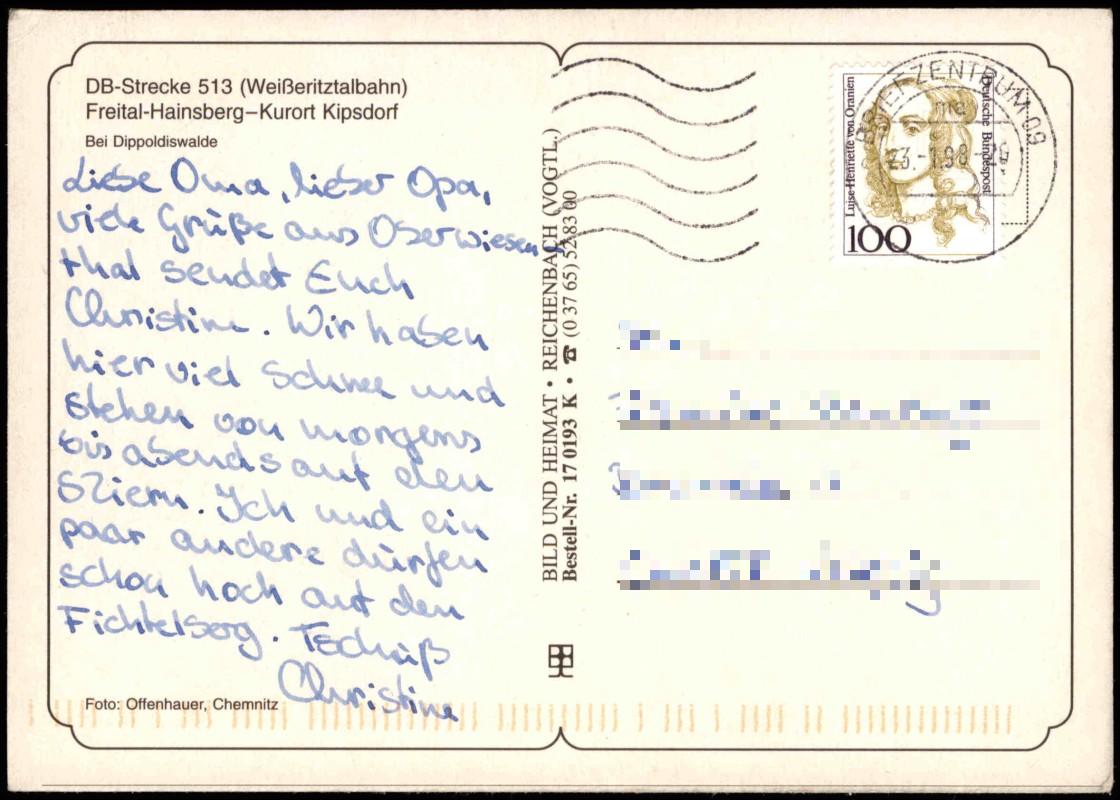 DB-Strecke 513 (Weißeritztalbahn)
Freital-Hainsberg–Kurort Kipsdorf
Bei Dippoldiswalde
Liebe Oma, lieber Opa,
viele Grüße aus Oberwiesen-
thal sendet Euch
Christine. Wir haben
hier viel Schnee und
stehen von morgens
bis abends auf den
Skiern. Ich und ein
paar andere dürfen
schon hoch auf den
Fichtelberg. Tschüß
Christine
Foto: Offenhauer, Chemnitz
BILD UND HEIMAT • REICHENBACH (VOGTL.)
Bestell-Nr. 17 0193 K • ☎ (0 37 65) 5283 00
Luise Henriette von Oranien
Deutsche Bundespost
100
BRIEFZENTRUM 09
23.-1.98